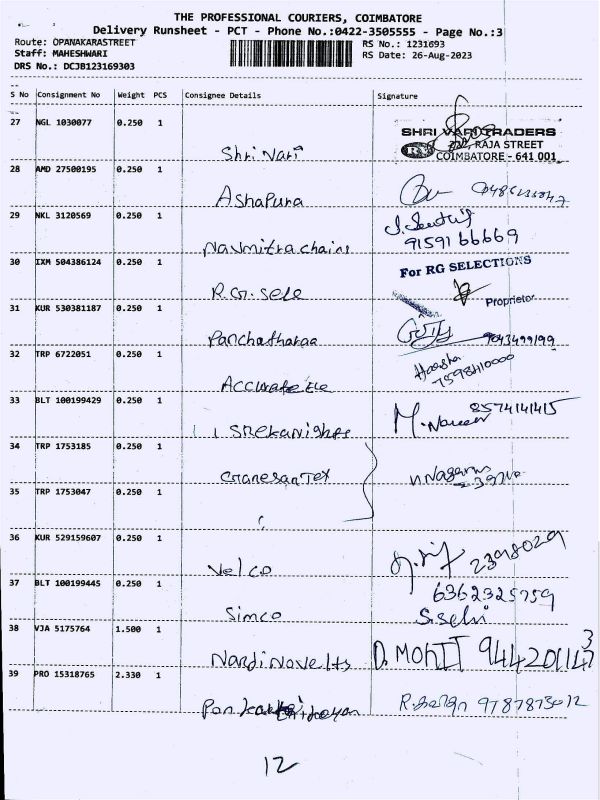 THE PROFESSIONAL COURIERS, COIMBATORE
Delivery Runsheet - PCT - Phone No.:0422-3505555 - Page No.:3
Route: OPANAKARASTREET
Staff: MAHESHWARI
DRS No.: DCJB123169303
RS No.: 1231693
RS Date: 26-Aug-2023
S No Consignment No Weight PCS Consignee Details Signature
27 NGL 1030077 0.250 1
Shri Vari
SHRI VARI TRADERS
RAJA STREET
COIMBATORE - 641 001
28 AMD 27500195 0.250 1
Ashapura
29 NKL 3120569 0.250 1
Navmitra chains
91591 66669
30 IXM 504386124 0.250 1
R.G. sele
For RG SELECTIONS
Proprietor
31 KUR 530381187 0.250 1
Panchatharaa
9043499199
32 TRP 6722051 0.250 1
Accurate
Haasha
7598410000
33 BLT 100199429 0.250 1
M. Naveen
8574141415
34 TRP 1753185 0.250 1
GanesanTex
35 TRP 1753047 0.250 1
36 KUR 529159607 0.250 1
Velco
2398029
37 BLT 100199445 0.250 1
Simco
6362325759
S.selvi
38 VJA 5175764 1.500 1
Nandi Novelts
D. MOHIT 9442011473
39 PRO 15318765 2.330 1
9787873012
12